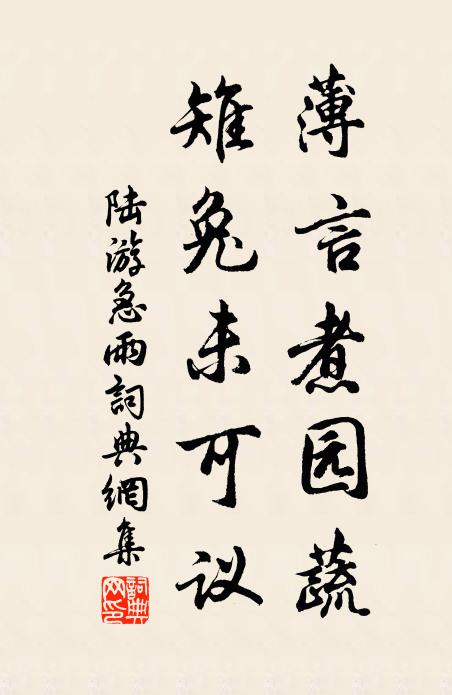 薄言煮园蔬
雉兔未可议
陆游急雨詞典網集
詞典网印